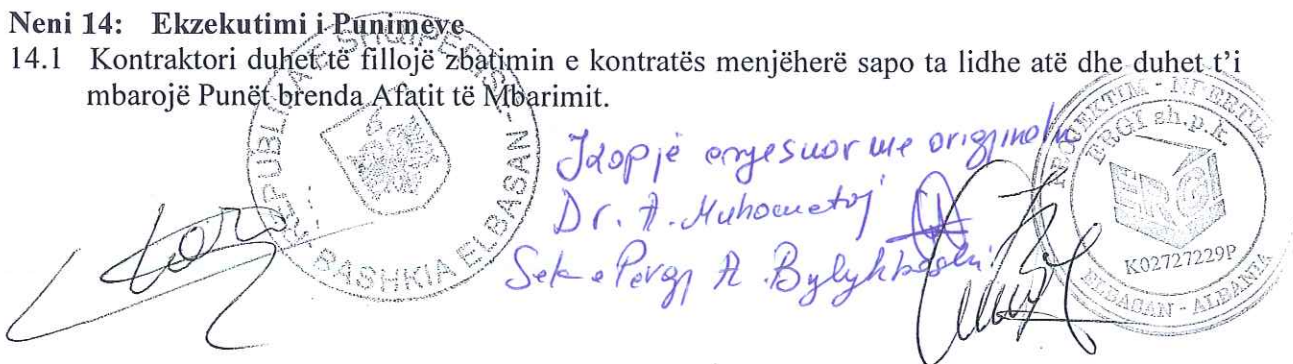 Neni 14: Ekzekutimi i Punimeve
14.1 Kontraktori duhet të fillojë zbatimin e kontratës menjëherë sapo ta lidhe atë dhe duhet t’i
mbarojë Punët brenda Afatit të Mbarimit.
REPUBLIKA E SHQIPERISE
BASHKIA ELBASAN
me origjinalin
Dr. A.
A. Bylykbashi
PROJEKTIM - NDERTIM
ERGI sh.p.k.
ERGI
K02727229P
ELBASAN - ALBANIA